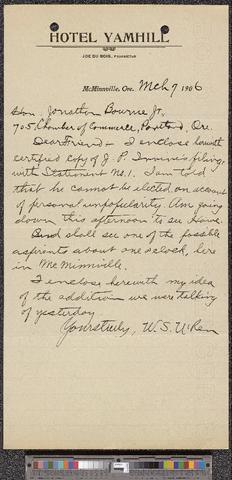 HOTEL YAMHILL
JOE DU BOIS, PROPRIETOR
McMinnville, Ore. Mch 7 1906
Hon. Jonathan Bourne Jr.,
705, Chamber of Commerce, Portland, Ore.
Dear Friend - I enclose herewith
certified copy of J. P. filing,
with Statement No. 1. I am told
that he cannot be elected on account
of personal unpopularity. Am going
down this afternoon to see
And shall see one of the possible
aspirants about one o'clock, here
in McMinnville.
I enclose herewith my idea
of the addition we were talking
of yesterday
Yours truly, W. S. U'Ren